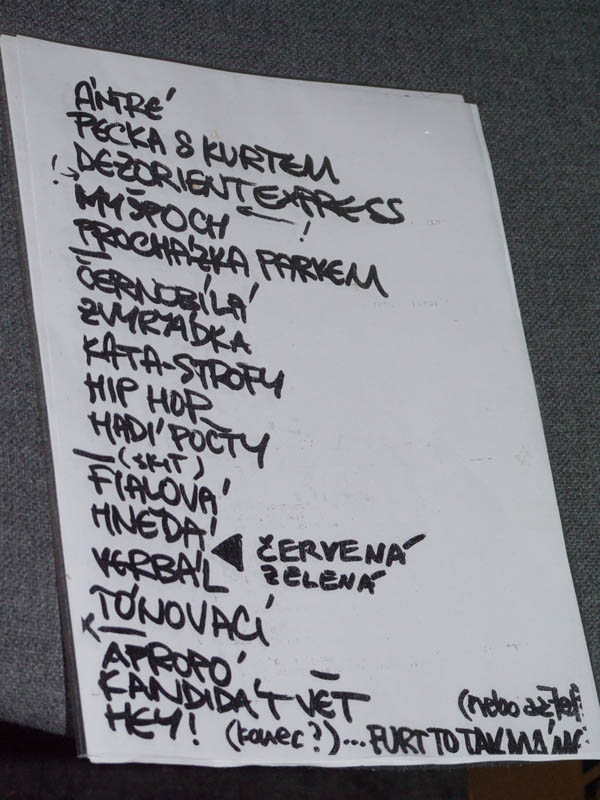 ÁNTRÉ
PECKA S KURTEM
DEZORIENTEXPRESS
! MYŠPOCH !
PROCHÁZKA PARKEM
ČERNOBÍLÁ
ZMRZÁDKA
KATA-STROFY
HIP HOP
HADÍ POČTY
(SKIT)
FIALOVÁ
HNĚDÁ
ČERVENÁ
VERBÁL
ZELENÁ
TÓNOVACÍ
APROPÓ
KANDIDÁT VĚT
(nebo až
HEY! (konec?)...FURT TO TAK MÁM